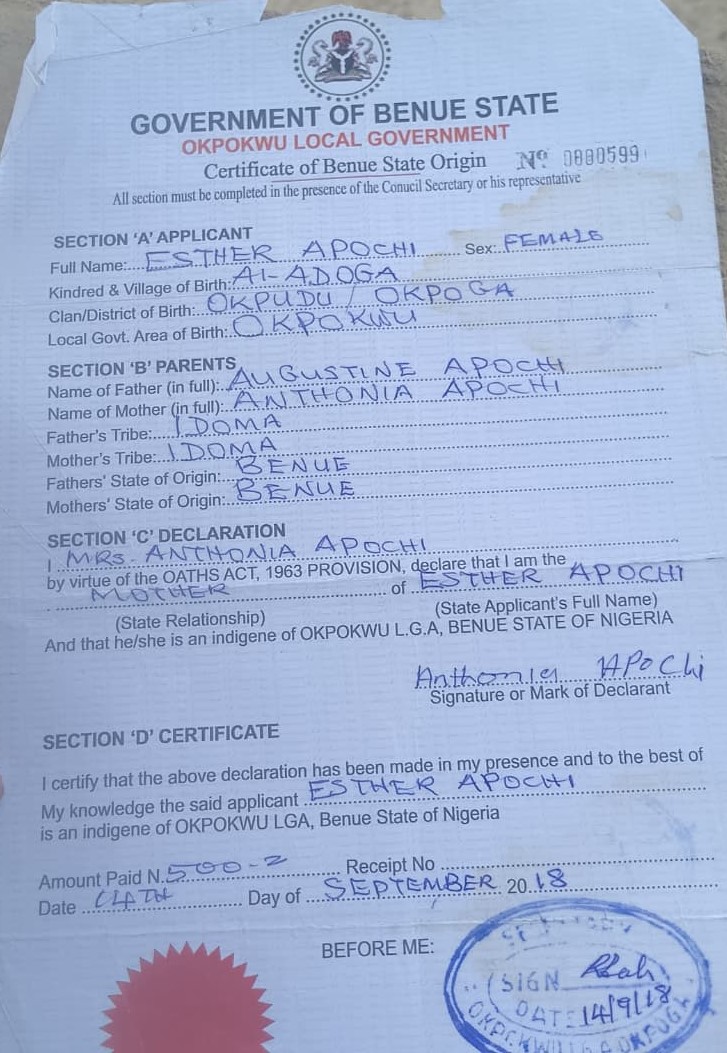 GOVERNMENT OF BENUE STATE
OKPOKWU LOCAL GOVERNMENT
Certificate of Benue State Origin Nº 0880599
All section must be completed in the presence of the Conucil Secretary or his representative
SECTION 'A' APPLICANT
Full Name: ESTHER APOCHI Sex: FEMALE
Kindred & Village of Birth: AI-ADOGA
Clan/District of Birth: OKPUDU / OKPOGA
Local Govt. Area of Birth: OKPOKWU
SECTION 'B' PARENTS
Name of Father (in full): AUGUSTINE APOCHI
Name of Mother (in full): ANTHONIA APOCHI
Father's Tribe: IDOMA
Mother's Tribe: IDOMA
Fathers' State of Origin: BENUE
Mothers' State of Origin: BENUE
SECTION 'C' DECLARATION
I MRS. ANTHONIA APOCHI
by virtue of the OATHS ACT, 1963 PROVISION, declare that I am the
MOTHER of ESTHER APOCHI
(State Relationship) (State Applicant's Full Name)
And that he/she is an indigene of OKPOKWU L.G.A, BENUE STATE OF NIGERIA
Anthonia APOCHI
Signature or Mark of Declarant
SECTION 'D' CERTIFICATE
I certify that the above declaration has been made in my presence and to the best of
My knowledge the said applicant ESTHER APOCHI
is an indigene of OKPOKWU LGA, Benue State of Nigeria
Amount Paid N. 500-2 Receipt No
Date 14TH Day of SEPTEMBER 2018
BEFORE ME:
SIGN
DATE: 14/9/18
OKPOKWU LGA OKPOGA